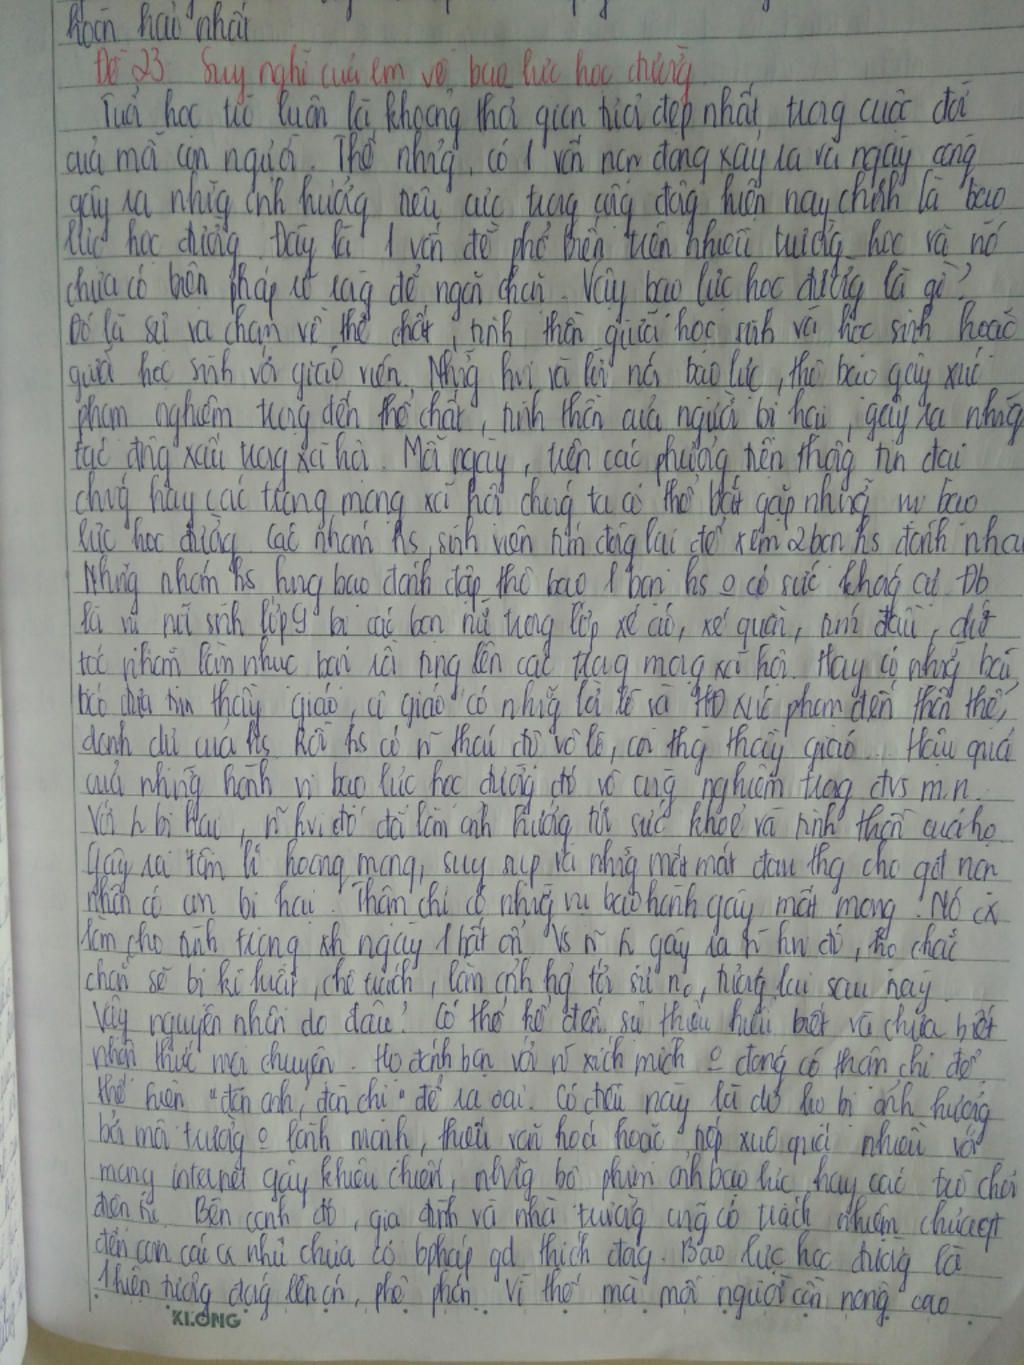 hoàn hảo nhất
Đề 23: Suy nghĩ của em về bạo lực học đường
Tuổi học trò luôn là khoảng thời gian tươi đẹp nhất trong cuộc đời
của mỗi con người. Thế nhưng, có 1 vấn nạn đang xảy ra và ngày càng
gây ra những ảnh hưởng tiêu cực trong cộng đồng hiện nay chính là bạo
lực học đường. Đây là 1 vấn đề phổ biến trên nhiều trường học và nó
chưa có biện pháp rõ ràng để ngăn chặn. Vậy bạo lực học đường là gì?
Đó là sự va chạm về thể chất, tinh thần giữa học sinh và học sinh hoặc
giữa học sinh với giáo viên. Những hvi và lời nói bạo lực, thô bạo gây xúc
phạm nghiêm trọng đến thể chất, tinh thần của người bị hại, gây ra những
tác động xấu trong xã hội. Mỗi ngày, trên các phương tiện thông tin đại
chúng hay các trang mạng xã hội chúng ta có thể bắt gặp những vụ bạo
lực học đường. Các nhóm hs, sinh viên túm đông lại để xem 2 bạn hs đánh nhau
Những nhóm hs hung bạo đánh đập thô bạo 1 bạn hs o có sức kháng cự. Đb
là vụ nữ sinh lớp 9 bị các bạn nữ trong lớp xé áo, xé quần, túm đầu, dứt
tóc nhằm làm nhục bạn rồi tung lên các trang mạng xã hội. Hay có những bài
báo đưa tin thầy giáo, cô giáo có những lời lẽ và HĐ xúc phạm đến thân thể,
danh dự của hs. Rồi hs có n~ thái độ vô lễ, coi thg thầy giáo... Hậu quả
của những hành vi bạo lực học đường đó vô cùng nghiêm trọng đvs m.n.
Với h bị hại, n~ hvi đó đã làm ảnh hưởng tới sức khoẻ và tinh thần của họ
Gây ra tâm lí hoang mang, suy sụp và những mất mát đau thg cho gđ nạn
nhân có con bị hại. Thậm chí có những vụ bạo hành gây mất mạng. Nó cx
làm cho tình trạng xh ngày 1 bất ổn. Vs n~ h gây ra n~ hvi đó, họ chắc
chắn sẽ bị kỉ luật, chê trách, làm ảnh hg tới sự no, tương lai sau này.
Vậy nguyên nhân do đâu? Có thể kể đến sự thiếu hiểu biết và chưa biết
nhận thức mọi chuyện. Họ đánh bạn với n~ xích mích o đáng có thậm chí để
thể hiện "đàn anh, đàn chị" để ra oai. Có điều này là do họ bị ảnh hưởng
bởi môi trường o lành mạnh, thiếu văn hoá hoặc tiếp xúc quá nhiều với
mạng internet gây khiêu chiến, những bộ phim ảnh bạo lực hay các trò chơi
điện tử. Bên cạnh đó, gia đình và nhà trường cũng có trách nhiệm chưa qt
đến con cái cx như chưa có bpháp gd thích đáng. Bạo lực học đường là
1 hiện tượng đáng lên án, phê phán. Vì thế mà mỗi người cần nâng cao
KLONG